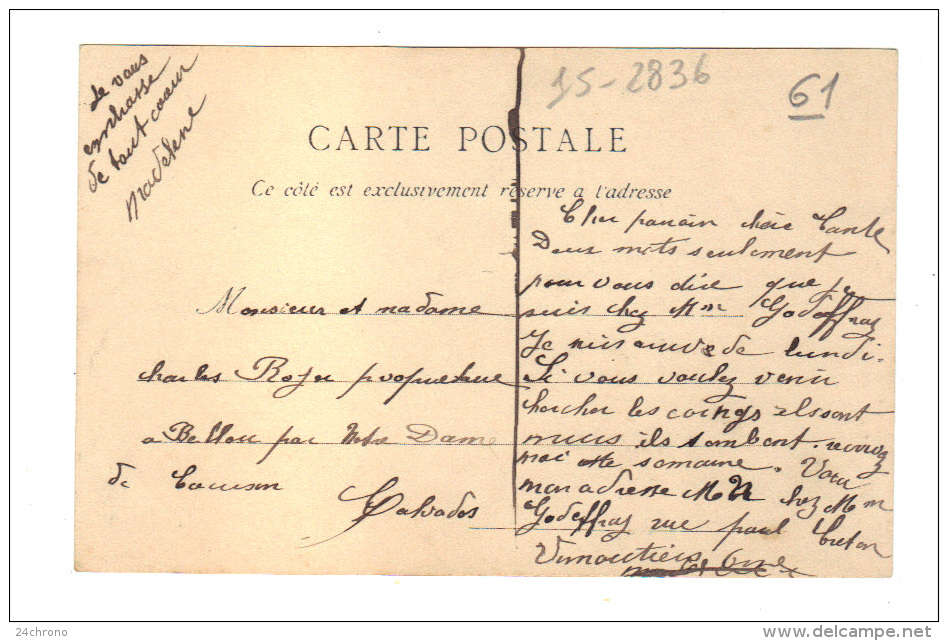 Je vous
embrasse
de tout coeur
Madelene
15-2836
61
CARTE POSTALE
Ce côté est exclusivement réservé a l'adresse
Monsieur et madame
charles Roger propriétaire
a Bellou par Notre Dame
de Courson
Calvados
Cher parrain chère Tante
Deux mots seulement
pour vous dire que je
suis chez Mm Godeffray
Je suis de lundi.
Si vous voulez venir
chercher les coings ils sont
murs ils tombent.
moi cette semaine. Voici
mon adresse chez Mm
Godeffray rue paul Creton
Vimoutiers Orne
24chrono
delcampe.net